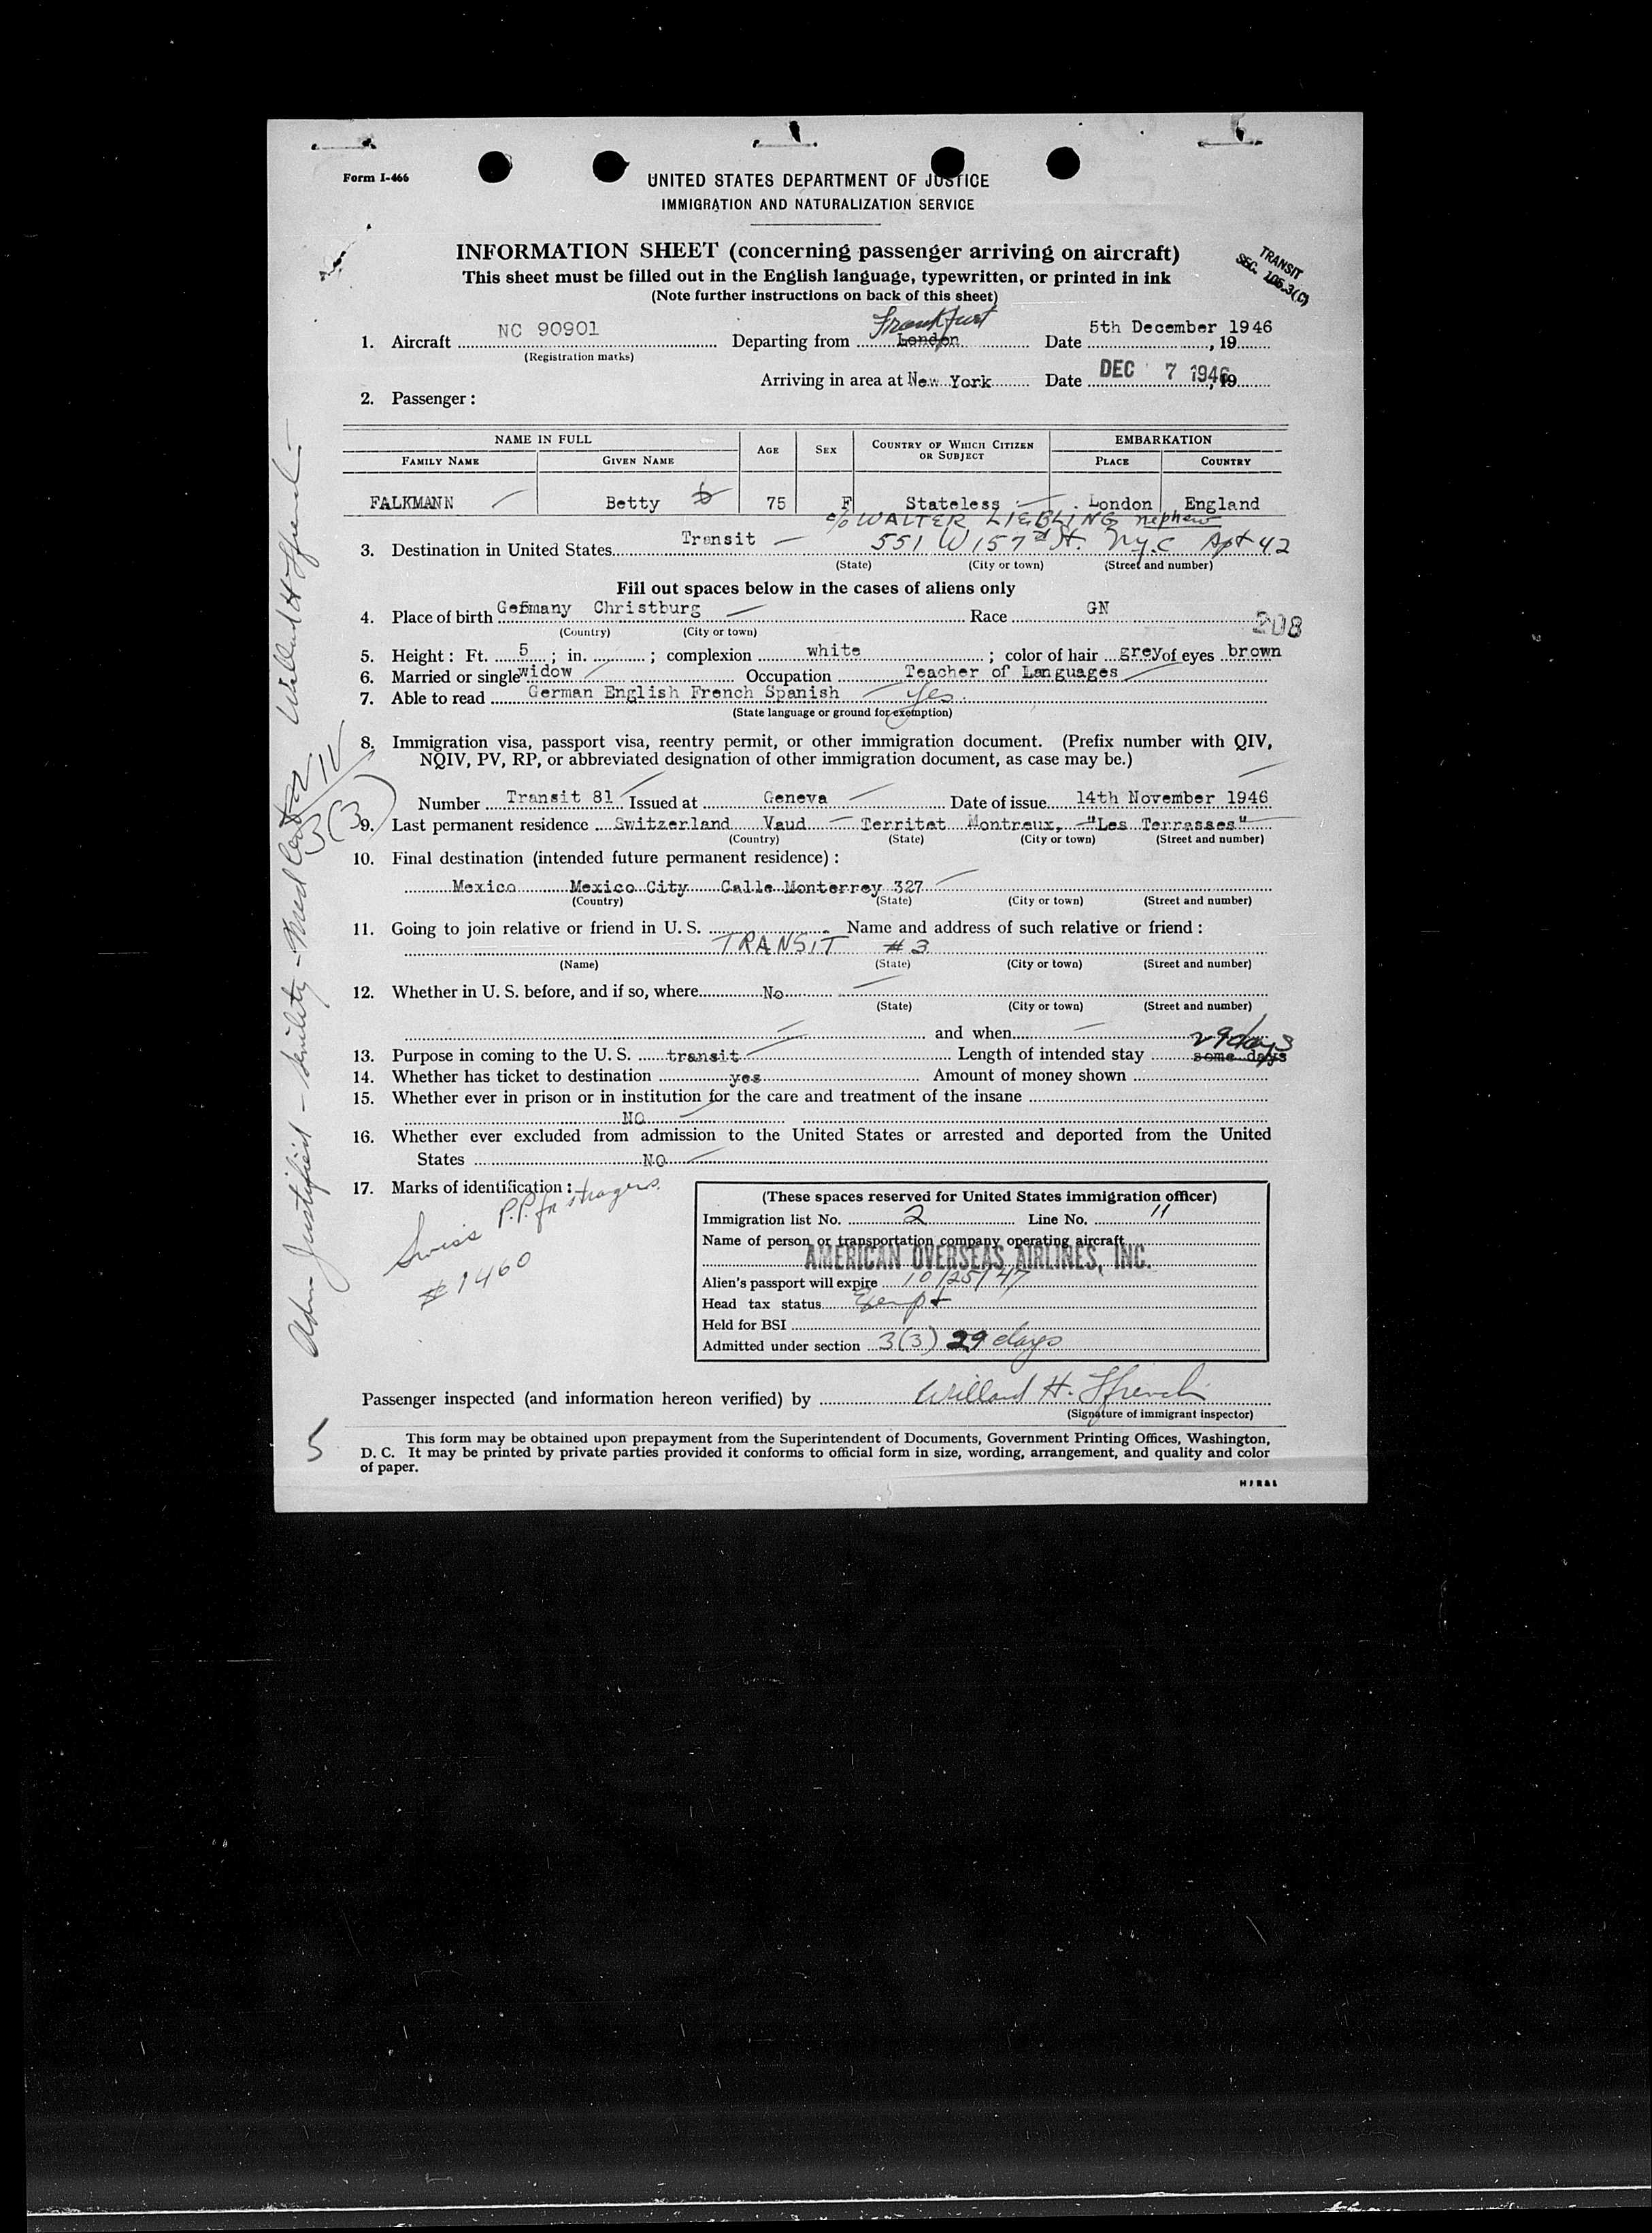 Form I-466
UNITED STATES DEPARTMENT OF JUSTICE
IMMIGRATION AND NATURALIZATION SERVICE
INFORMATION SHEET (concerning passenger arriving on aircraft)
This sheet must be filled out in the English language, typewritten, or printed in ink
(Note further instructions on back of this sheet)
TRANSIT
SEC. 105.3(C)
Frankfurt
1. Aircraft NC 90901 Departing from London Date 5th December 1946, 19
(Registration marks)
Arriving in area at New York Date DEC 7 1946, 19
2. Passenger:
NAME IN FULL AGE SEX COUNTRY OF WHICH CITIZEN OR SUBJECT EMBARKATION
FAMILY NAME GIVEN NAME PLACE COUNTRY
FALKMANN Betty 75 F Stateless London England
c/o WALTER LIEBLING nephew
3. Destination in United States Transit 551 W 157 St. N.y.c Apt 42
(State) (City or town) (Street and number)
Fill out spaces below in the cases of aliens only
4. Place of birth Germany Christburg Race GN
(Country) (City or town)
208
5. Height: Ft. 5; in. ; complexion white; color of hair grey of eyes brown
6. Married or single widow Occupation Teacher of Languages
7. Able to read German English French Spanish yes
(State language or ground for exemption)
8. Immigration visa, passport visa, reentry permit, or other immigration document. (Prefix number with QIV,
NQIV, PV, RP, or abbreviated designation of other immigration document, as case may be.)
Number Transit 81 Issued at Geneva Date of issue 14th November 1946
9. Last permanent residence Switzerland Vaud Territet Montreux, "Les Terrasses"
(Country) (State) (City or town) (Street and number)
10. Final destination (intended future permanent residence):
Mexico Mexico City Calle Monterrey 327
(Country) (State) (City or town) (Street and number)
11. Going to join relative or friend in U. S. Name and address of such relative or friend:
TRANSIT #3
(Name) (State) (City or town) (Street and number)
12. Whether in U. S. before, and if so, where No
(State) (City or town) (Street and number)
and when
29 days
13. Purpose in coming to the U. S. transit Length of intended stay some days
14. Whether has ticket to destination yes Amount of money shown
15. Whether ever in prison or in institution for the care and treatment of the insane
NO
16. Whether ever excluded from admission to the United States or arrested and deported from the United
States NO
17. Marks of identification:
Swiss P.P. for
#1460
(These spaces reserved for United States immigration officer)
Immigration list No. 2 Line No. 11
Name of person or transportation company operating aircraft
AMERICAN OVERSEAS AIRLINES, INC.
Alien's passport will expire 10/25/47
Head tax status Exempt
Held for BSI
Admitted under section 3(3) 29 days
Passenger inspected (and information hereon verified) by Willard H. Ffrench
(Signature of immigrant inspector)
This form may be obtained upon prepayment from the Superintendent of Documents, Government Printing Offices, Washington,
D. C. It may be printed by private parties provided it conforms to official form in size, wording, arrangement, and quality and color
of paper.
5
Adm Justified - senility - Med Willard H Ffrench
3(3)